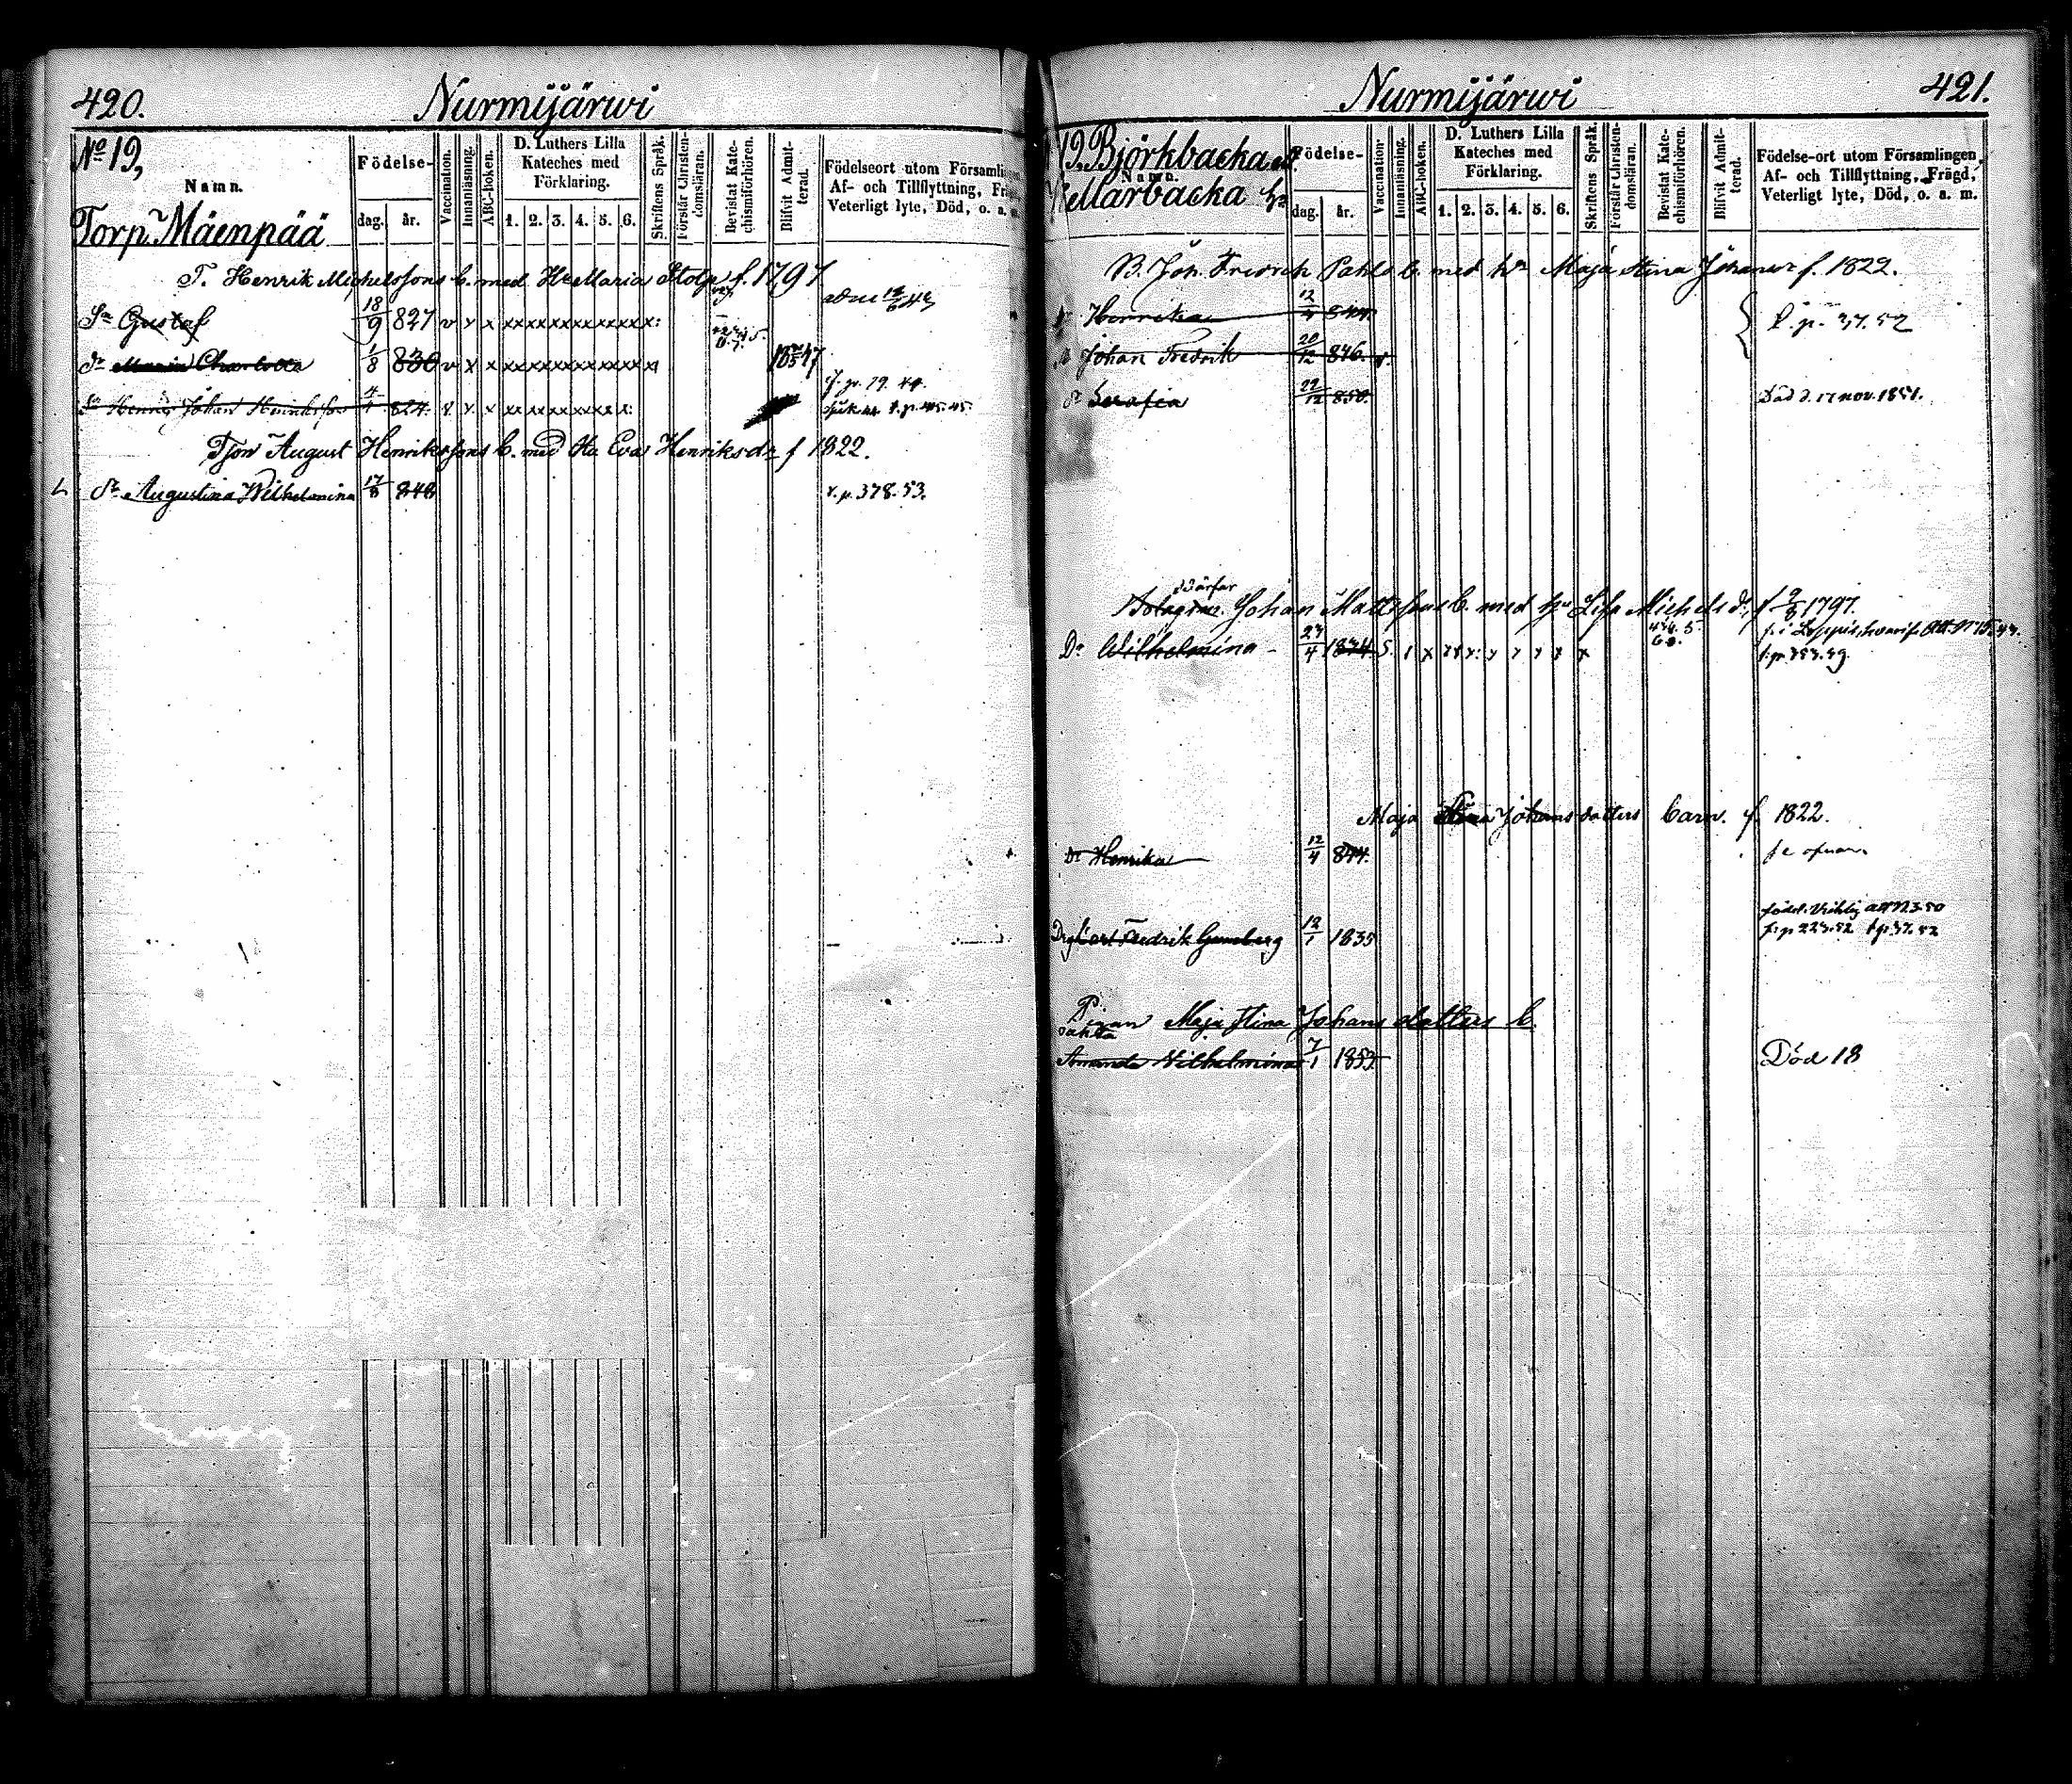 420. Nurmijärwi
No 19,
Namn.
Födelse-
dag. år.
Vaccination.
Innanläsning.
ABC-boken.
D. Luthers Lilla
Kateches med
Förklaring.
1. 2. 3. 4. 5. 6.
Skriftens Språk.
Förstår Christen-
domsläran.
Bevistat Kate-
chismiförhören.
Blifvit Admit-
terad.
Födelseort utom Församlingen
Af- och Tillflyttning,
Veterligt lyte, Död, o. a. m.
Torp. Mäenpää
T. Henrik Michelssons b. med H. Maria Stolp f. 1797
Sn Gustaf 18/9 827 v x x xxxxxxxxxxxx
Dr Maria Charlotta 1/8 830 v x x xxxxxxxxxxxx
Sn Johan Henriksson 824. x x xxxxxxxxx f. p. 79. 44.
Tjon August Henrikssons b. med Hu. Eva Henriksdr f 1822.
Dr Augustina Wilhelmina 17/8 848 t. p. 378. 53.
Nurmijärwi 421.
19. Björkbacka
Namn.
Kellarbacka
Födelse-
dag. år.
Vaccination.
Innanläsning.
ABC-boken.
D. Luthers Lilla
Kateches med
Förklaring.
1. 2. 3. 4. 5. 6.
Skriftens Språk.
Förstår Christen-
domsläran.
Bevistat Kate-
chismiförhören.
Blifvit Admit-
terad.
Födelse-ort utom Församlingen,
Af- och Tillflyttning, Frägd,
Veterligt lyte, Död, o. a. m.
B. Joh. Fredrich Pahls b. med hu Maja Stina Johansdr f. 1822.
Dr Henrika 12/4 844. t. p. 37. 52
Sn Johan Fredrik 20/12 846. v.
Dr Serafia 22/12 850. Död d. 17 nov. 1851.
Swärfar
Johan Mattssons b. med hu Lisa Michelsdr, f 1797.
Dr Wilhelmina 23/4 1834 t. p. 383. 49.
Maja Stina Johansdotters barn. f. 1822.
Dr Henrika 12/4 844. se ofvan
Carl Fredrik Gumberg 12/1 1835 f. p 223. 52 t p 37. 52
Pigan Maja Stina Johansdotters b.
oäkta
Amanda Wilhelmina 7/1 1853 Död 18